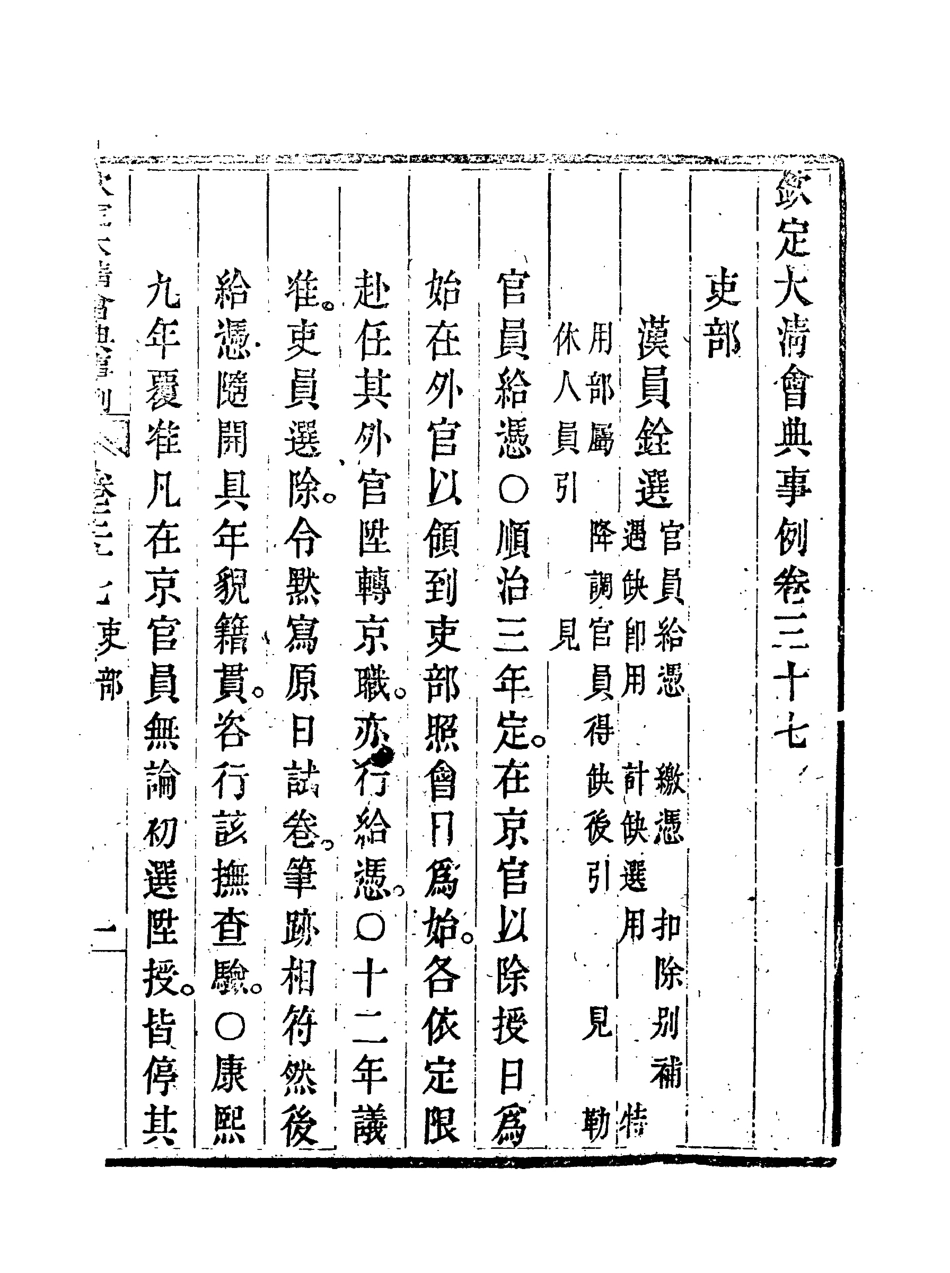 欽定大清會典事例卷三十七
吏部
漢員銓選
官員給憑 繳憑 扣除別補
遇缺卽用 計缺選用 特
用部屬 降調官員得缺後引 見 勒
休人員引 見
官員給憑○順治三年定。在京官以除授日爲
始在外官以領到吏部照會日爲始。各依定限
赴任其外官陞轉京職。亦行給憑。○十二年議
准。吏員選除。令默寫原日試卷。筆跡相符然後
給憑隨開具年貌籍貫。咨行該撫查驗。○康熙
九年覆准凡在京官員無論初選陞授。皆停其
欽定大清會典事例 卷三十七 吏部 一